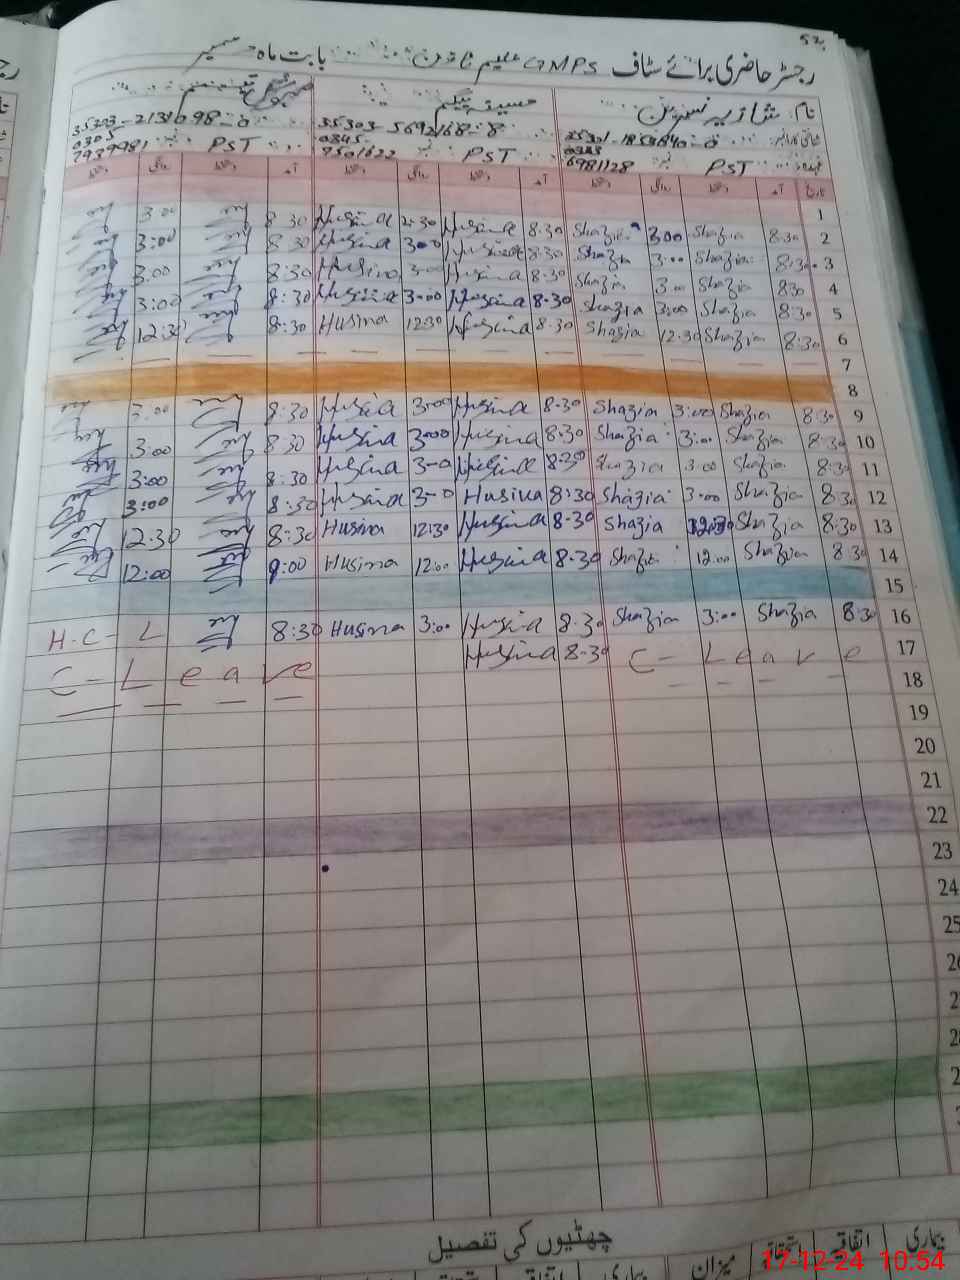 52
رجسٹر حاضری برائے سٹاف GMPS علیم ٹاؤن بابت ماہ دسمبر
نام: شازیہ نسرین حسینہ بیگم
35301-1859840-0 35303-5692168-8 35303-2131098-0
0345 0305
6981128 PST 7501622 PST 7939981 PST
تاریخ آمد دستخط روانگی دستخط آمد دستخط روانگی دستخط آمد دستخط روانگی دستخط
1
2 8.30 Shazia 3.00 Shazia 8.30 Husina 2:30 Husina 8.30 3.00
3 8.30 Shazia 3.00 Shazia 8.30 Husina 3.00 Husina 8.30 3:00
4 830 Shazia 3.00 Shazia 8.30 Husina 3.00 Husina 8:30 3.00
5 8.30 Shazia 3.00 Shazia 8.30 Husina 3.00 Husina 8.30 3:00
6 8:30 Shazia 12.30 Shazia 8.30 Husina 12.30 Husina 8:30 12:30
7
8
9 8.30 Shazia 3.00 Shazia 8.30 Husina 3.00 Husina 8:30 3.00
10 8.30 Shazia 3.00 Shazia 8.30 Husina 3.00 Husina 8.30 3:00
11 8.30 Shazia 3.00 Shazia 8.30 Husina 3-0 Husina 8.30 3:00
12 8.30 Shazia 3.00 Shazia 8:30 Husina 3-0 Husina 8:30 3:00
13 8.30 Shazia Shazia 8.30 Husina 12:30 Husina 8:30 12:30
14 8.30 Shazia 12.00 Shazia 8.30 Husina 12:00 Husina 9:00 12:00
15
16 8.30 Shazia 3:00 Shazia 8.30 Husina 3:00 Husina 8:30 H-C-L
17 C-Leave 8.30 Husina C-Leave
18
19
20
21
22
23
24
25
چھٹیوں کی تفصیل
بیماری اتفاقیہ استحقاقیہ میزان بیماری اتفاقیہ
17-12-24 10:54